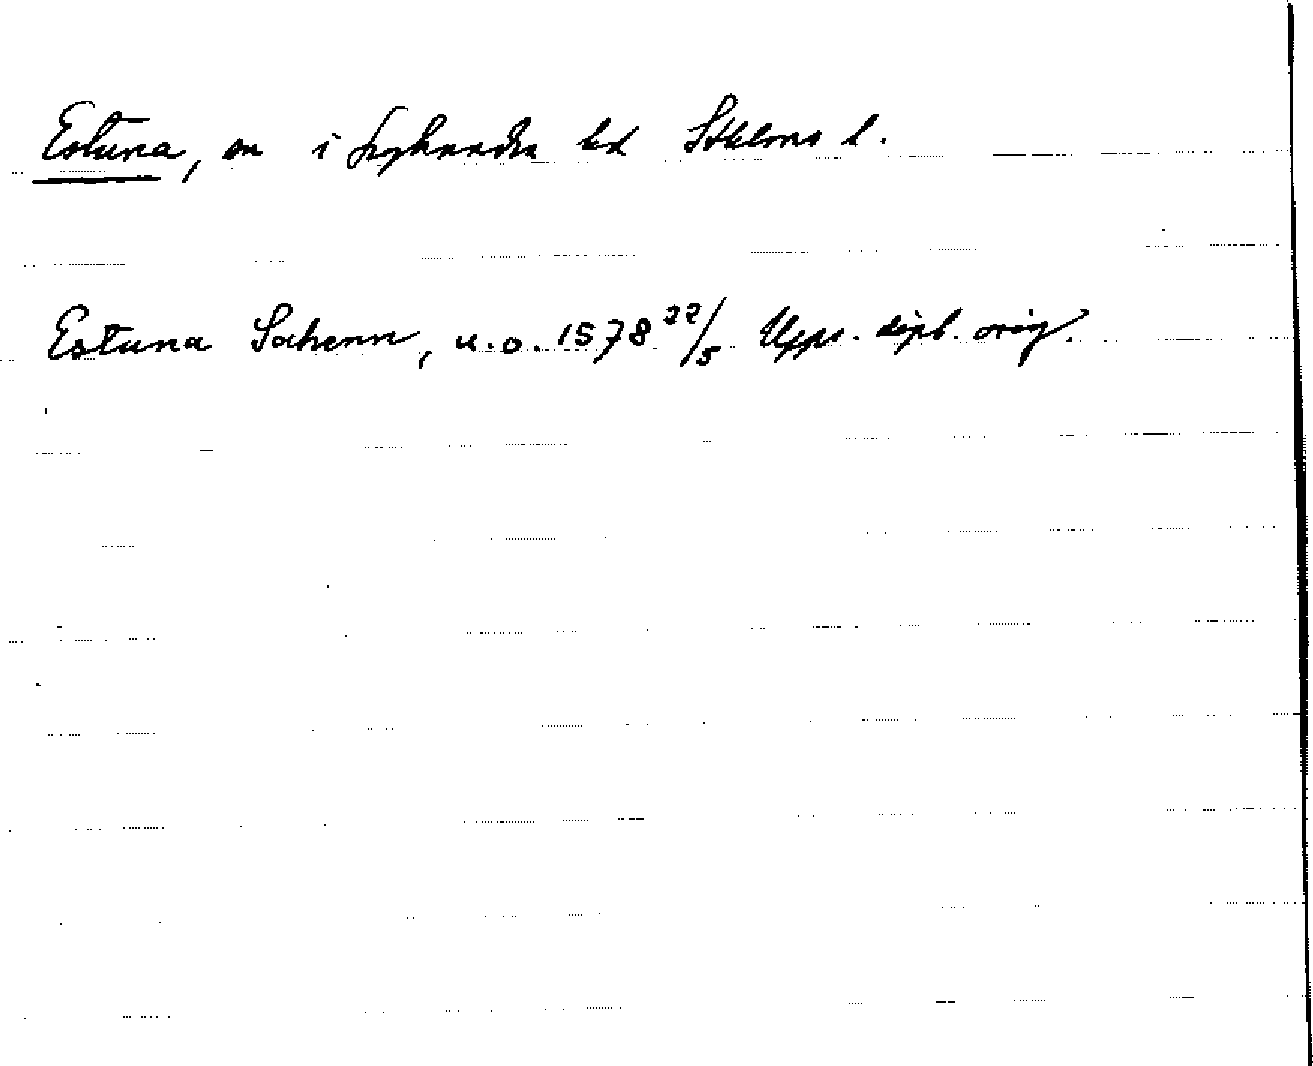 Estuna, sn i Lyhundra hd Sthlms l.
Estuna Sochenn, u.o. 1578 22/5 Upps. dipl. orig.